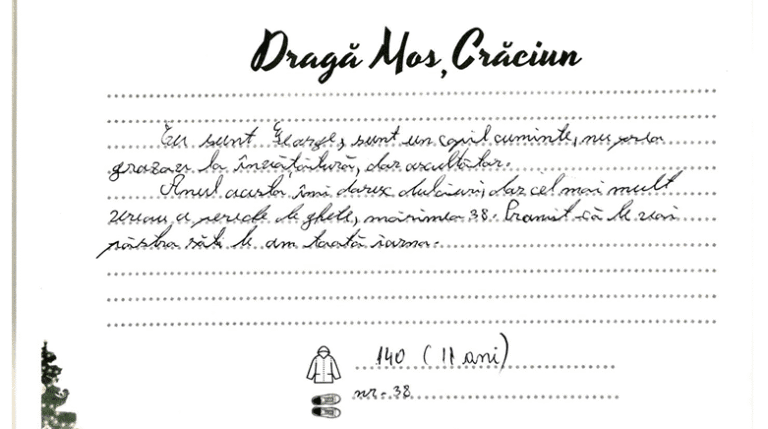 Dragă Moș Crăciun
Eu sunt George, sunt un copil cuminte, nu prea
grozav la învățătură, dar ascultător.
Anul acesta îmi doresc dulciuri, dar cel mai mult
vreau o pereche de ghete, mărimea 38. Promit că le voi
păstra să le am toată iarna.
140 (11 ani)
nr. 38